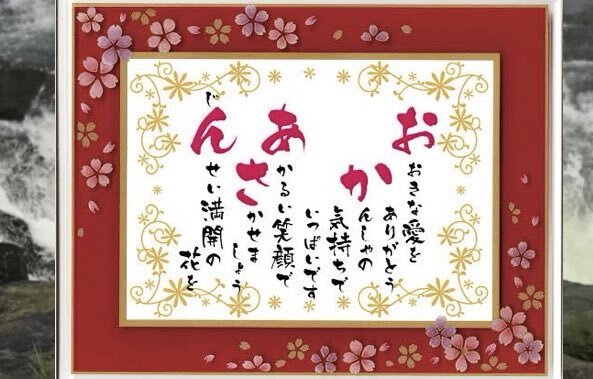 おおきな愛を
ありがとう
かんしゃの
気持ちで
いっぱいです
あかるい笑顔で
さかせま
しょう
じんせい満開の
花を